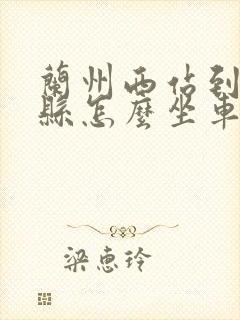 蘭州西佔到
縣怎麼坐車
梁惠玲